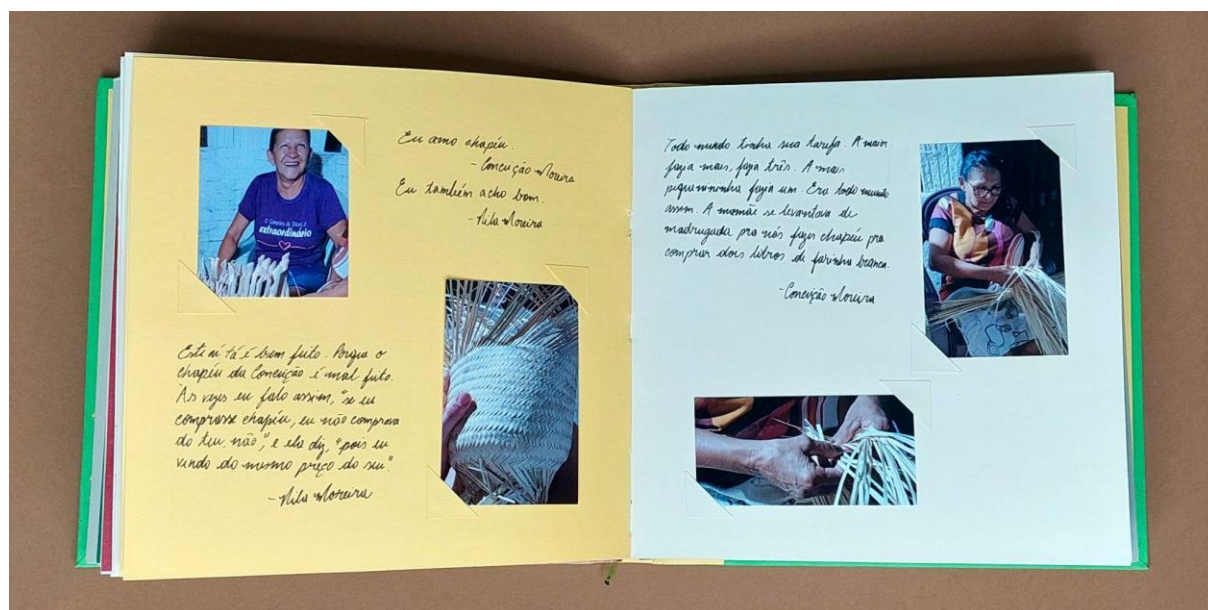 O Simples de Deus é
extraordinário
Eu amo chapéu.
- Conceição Moreira
Eu também acho bom.
- Nila Moreira
Este aí tá é bem feito. Porque o
chapéu da Conceição é mal feito.
Às vezes eu falo assim, "se eu
comprasse chapéu, eu não comprava
do teu, não", e ela diz, "pois eu
vendo do mesmo preço do seu".
- Nila Moreira
Todo mundo tinha sua tarefa. A maior
fazia mais, fazia três. A mais
pequenininha fazia um. Era todo mundo
assim. A mamãe se levantava de
madrugada pra nós fazer chapéu pra
comprar dois litros de farinha branca.
- Conceição Moreira